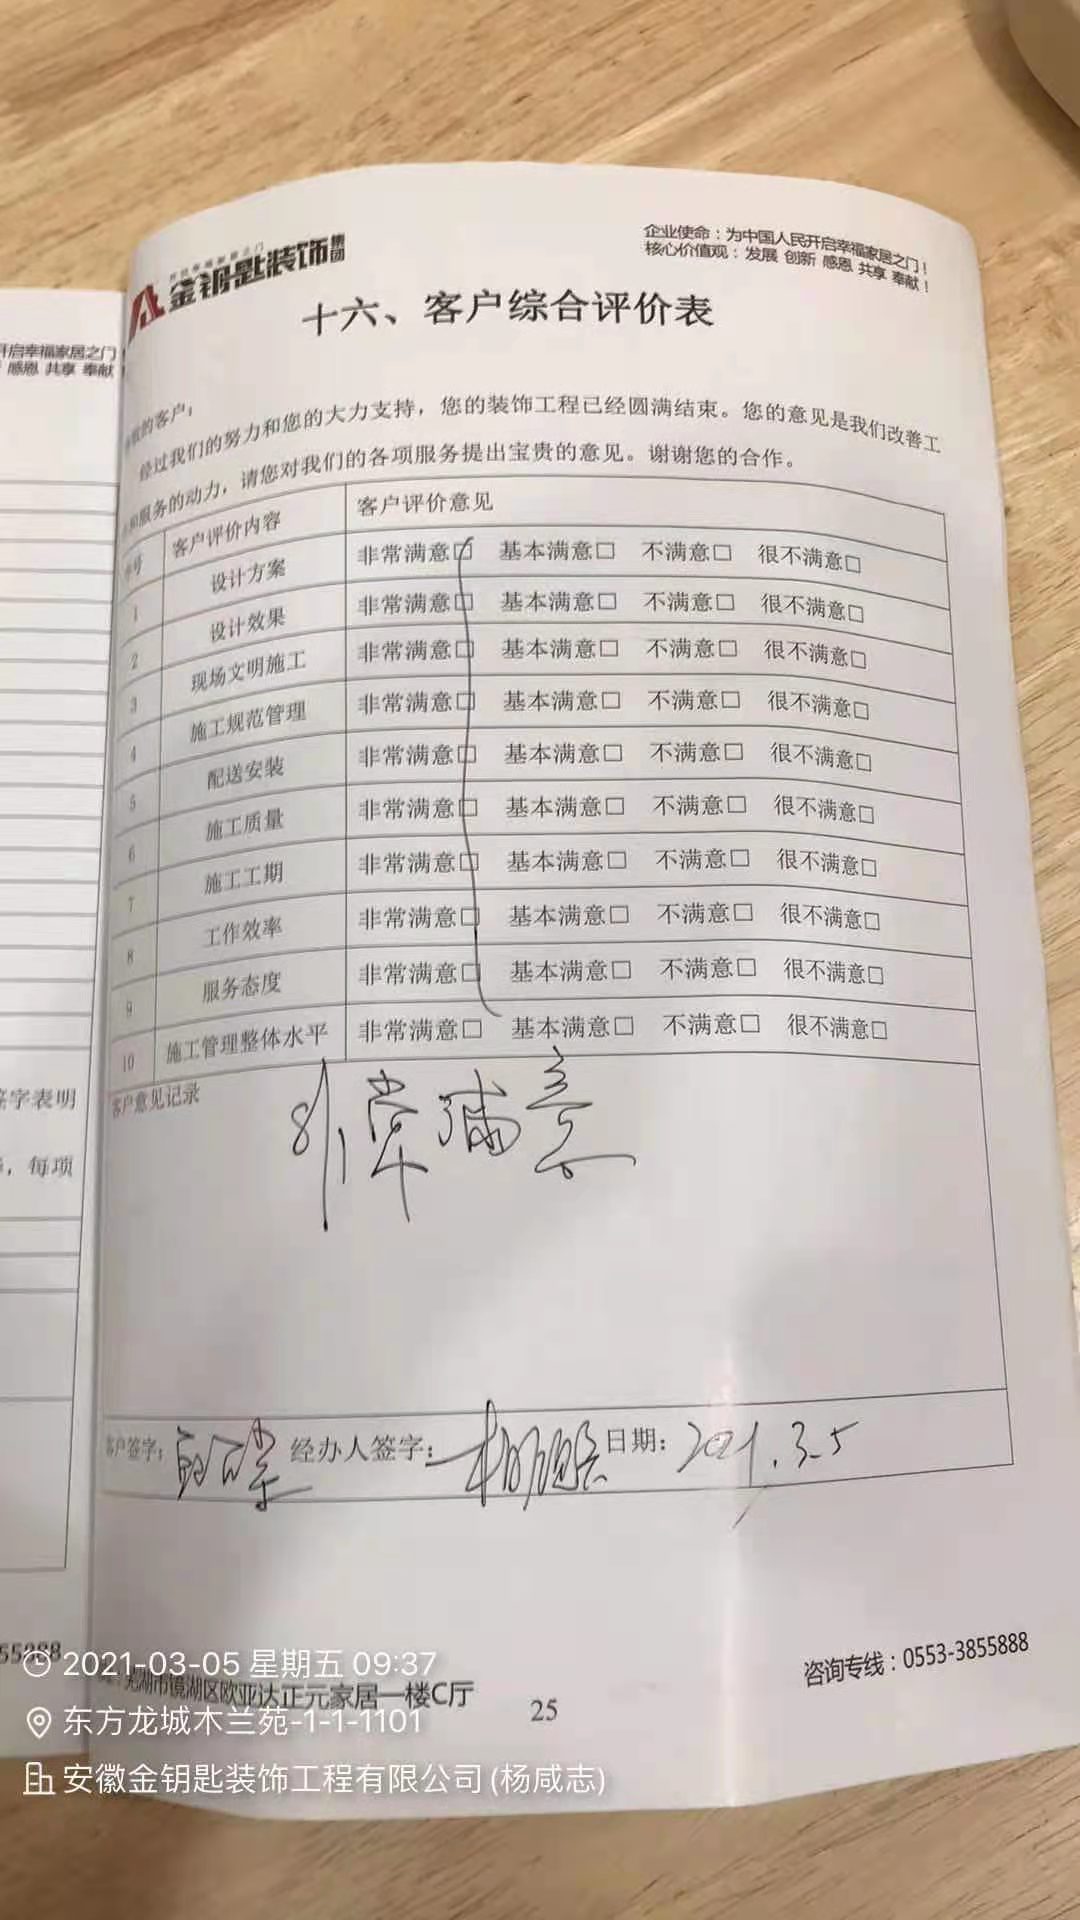 金钥匙装饰集团
企业使命：为中国人民开启幸福家居之门！
核心价值观：发展 创新 感恩 共享 奉献！
开启幸福家居之门
感恩 共享 奉献
十六、客户综合评价表
的客户：
经过我们的努力和您的大力支持，您的装饰工程已经圆满结束。您的意见是我们改善工
和服务的动力，请您对我们的各项服务提出宝贵的意见。谢谢您的合作。
号 客户评价内容 客户评价意见
1 设计方案 非常满意□ 基本满意□ 不满意□ 很不满意□
2 设计效果 非常满意□ 基本满意□ 不满意□ 很不满意□
3 现场文明施工 非常满意□ 基本满意□ 不满意□ 很不满意□
4 施工规范管理 非常满意□ 基本满意□ 不满意□ 很不满意□
5 配送安装 非常满意□ 基本满意□ 不满意□ 很不满意□
6 施工质量 非常满意□ 基本满意□ 不满意□ 很不满意□
7 施工工期 非常满意□ 基本满意□ 不满意□ 很不满意□
8 工作效率 非常满意□ 基本满意□ 不满意□ 很不满意□
9 服务态度 非常满意□ 基本满意□ 不满意□ 很不满意□
10 施工管理整体水平 非常满意□ 基本满意□ 不满意□ 很不满意□
客户意见记录
非常满意
签字表明
，每项
客户签字： 经办人签字： 日期：2021.3.5
55888
芜湖市镜湖区欧亚达正元家居一楼C厅
25
咨询专线：0553-3855888
2021-03-05 星期五 09:37
东方龙城木兰苑-1-1-1101
安徽金钥匙装饰工程有限公司(杨咸志)